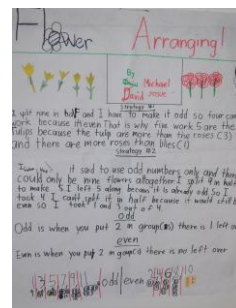 Flower
Arranging!
By
Michael
David
Strategy #1
I split nine in half and I have to make it odd so four can
work because it even That is why five work 5 are the
tulips because the tulip are more than the roses (3)
and there are more roses than lilies (1)
Strategy #2
it said to use odd numbers only and there
could only be nine flowers alltogether I split 4 in half
to make 5. I left 5 along because it is already odd so I
took 4 I can't split it in half because it would still be
even so I took 1 and 3 out of 4.
Odd
Odd is when you put 2 in group(s) there is 1 left o
even
Even is when you put 2 in group(s) there is no left over
1 3 5 7 9 11 odd even 2 4 6 8 10